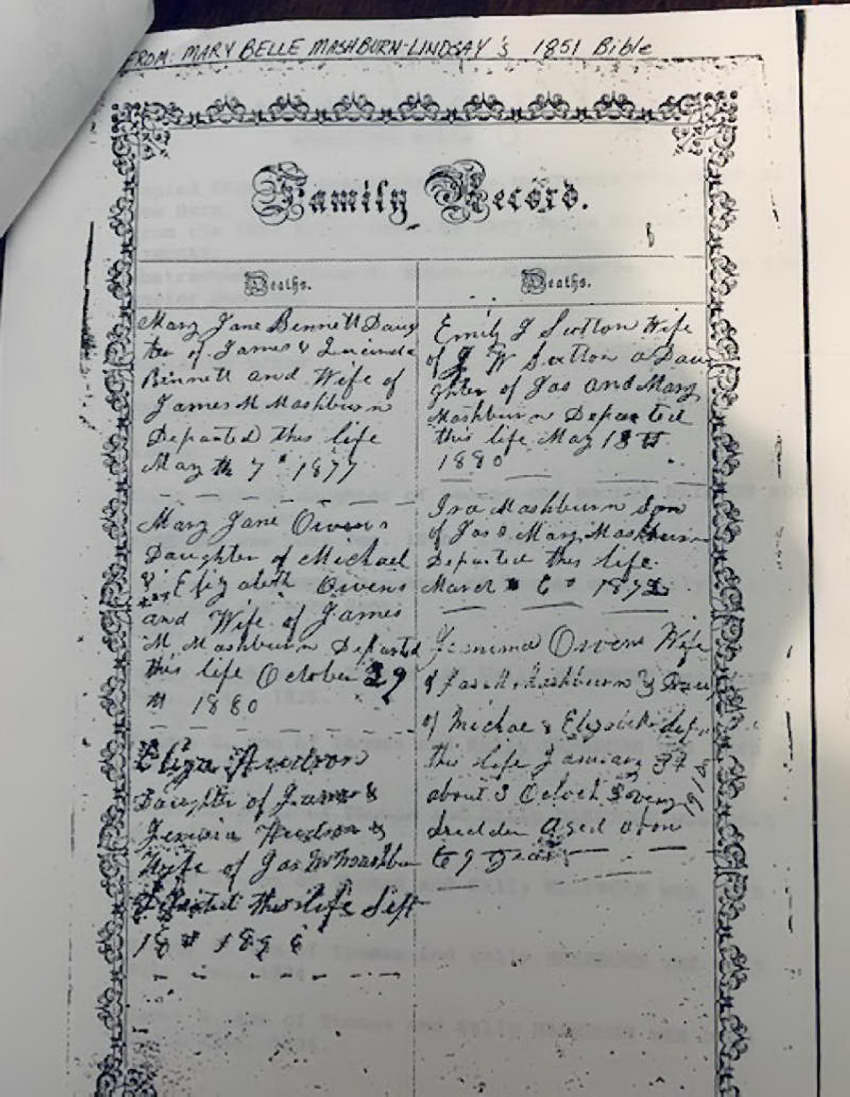 FROM: MARY BELLE MASHBURN-LINDSAY'S 1851 Bible
Family Record.
Deaths.
Mary Jane Bennett Daug
ter of James & Lucinda
Binnett and Wife of
James M Mashburn
Departed this life
May th 7 " 1877
Mary Jane Owens
Daughter of Michael
& Elizabeth Owens
and Wife of James
M Mashburn Departed
this life October 29
th 1880
Eliza Hudson
Daughter of James &
Hudson &
Wife of Jas M Mashbu
Departed this life Sept
18 th 189
Deaths.
Emily J Sutton Wife
of J W Sutton a Dau
ghter of Jas and Mary
Mashburn Departed
this life May 18 th
1880
Ira Mashburn Son
of Jas & Mary Mashburn
Departed this life
March 6 187
Jemima Owens Wife
of Jas M. Mashburn & Dau
of Michael & Elizabeth dep
this life January
about 3 Oclock
1918
Aged
69 Years